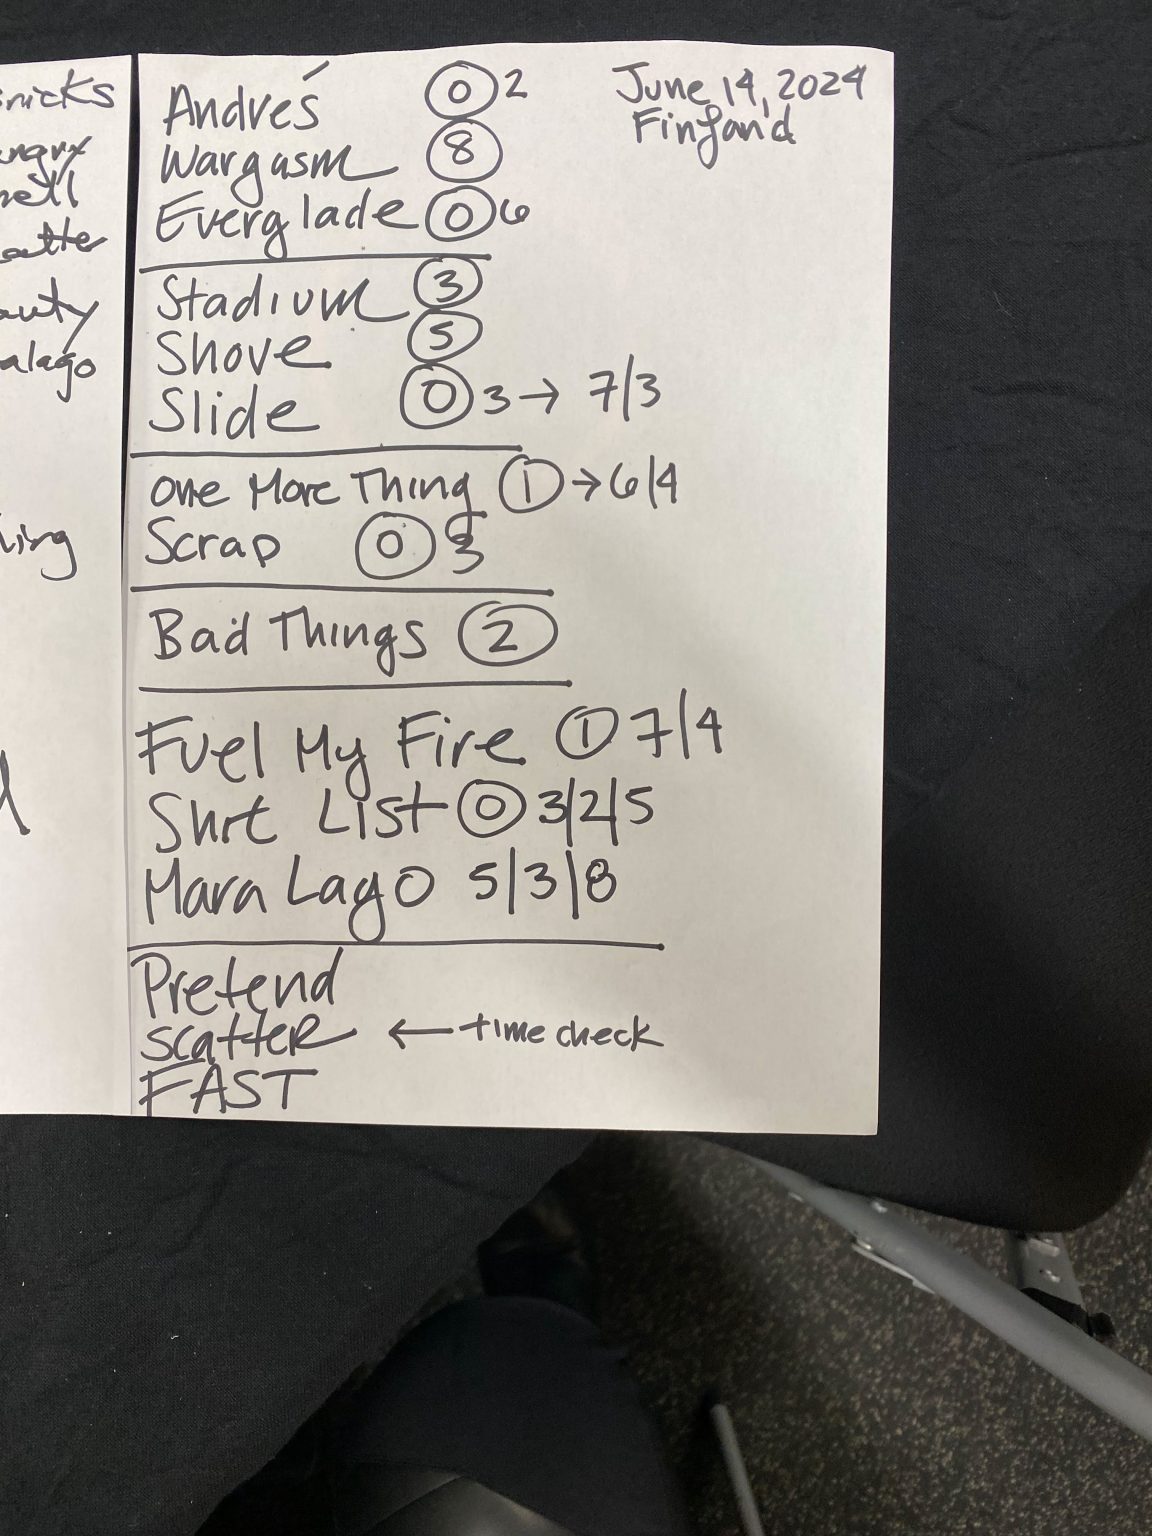 nicks
ngry
hell
atter
auty
alago
ling
Andrés 0 2
Wargasm 8
Everglade 0 6
Stadium 3
Shove 5
Slide 0 3 → 7/3
One More Thing 1 → 6/4
Scrap 0 3
Bad Things 2
Fuel My Fire 1 7/4
Shrt List 0 3/2/5
Mara Lago 5/3/8
Pretend
Scatter ← time check
FAST
June 14, 2024
Finland